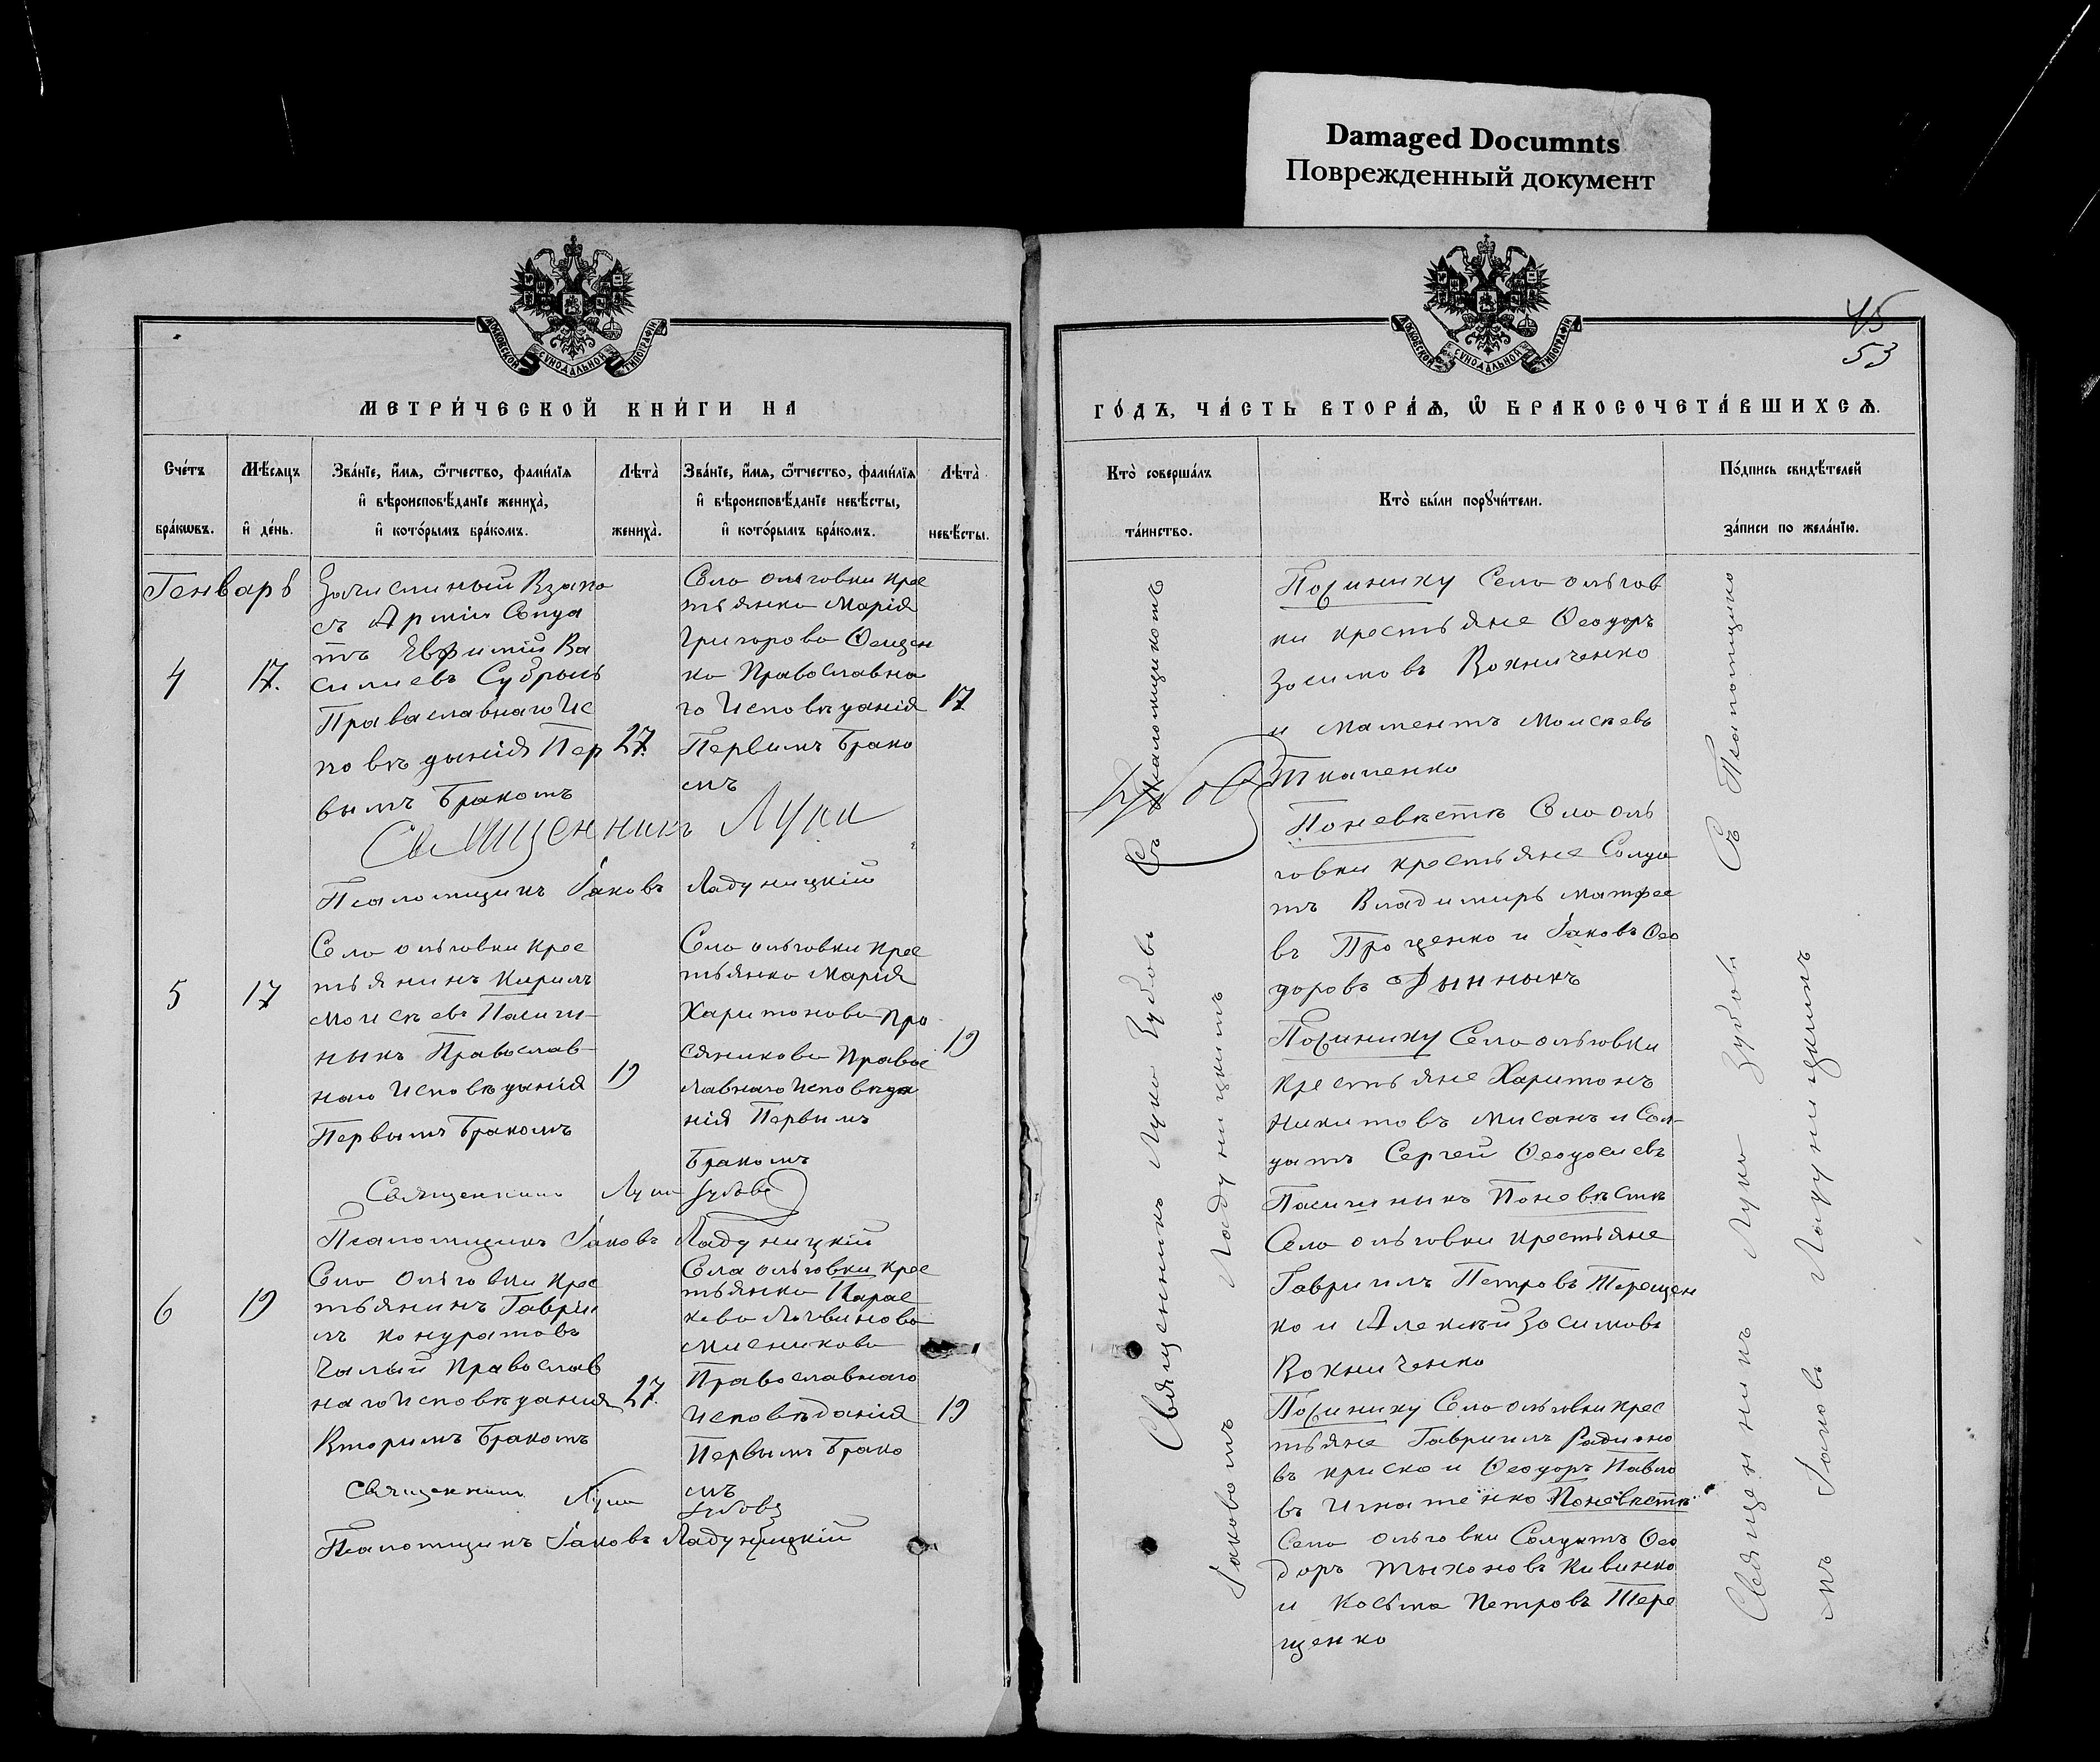 Damaged Documnts
Поврежденный документ
МОСКОВСКОЙ СѴНОДАЛЬНОЙ ТИПОГРАФІИ
МЕТРИ́ЧЕСКОЙ КНИ́ГИ НА
Сче́тъ бра́кѡвъ.
Мѣ́сяцъ и҆ де́нь.
Зва́нїе, и҆́мѧ, ѻ҆́тчество, фами́лїѧ
и҆ вѣроисповѣ́данїе жениха̀,
и҆ кото́рымъ бра́комъ.
Лѣта̀ жениха̀.
Зва́нїе, и҆́мѧ, ѻ҆́тчество, фами́лїѧ
и҆ вѣроисповѣ́данїе невѣ́сты,
и҆ кото́рымъ бра́комъ.
Лѣта̀ невѣ́сты.
Генварь
4
17.
Зачисленый Взапа
съ Арміи Солда
тъ Евфимій Ва
силиевъ
Праваславнаго Ис
повѣданія Пер
вымъ Бракомъ
27.
Село ольговки крес
тьянка Марія
Григорова
ка Православна
го Исповѣданія
Первимъ Брако
мъ
17
Священникъ Лука
Псаломщикъ Іаковъ Ладуницкій
5
17
Село ольговки крес
тьянинъ Кирилъ
Моисѣевъ Пасич-
ныкъ Православ-
наго Исповѣданія
Первымъ Бракомъ
19
Село ольговки крес
тьянка Марія
Харитонова Про
сяникова Правос
лавнаго Исповѣда
нія Первимъ
Бракомъ
19
Священникъ Лука Зубовъ
Псаломщикъ Іаковъ Ладуницкій
6
19
Село Ольговки крес
тьянинъ Гаврии
лъ Кондратовъ
Чалый Православ
наго Исповѣдания
Вторимъ Бракомъ
27.
Села ольговки крес
тьянка Парас
кева Логвинова
Мисникова
Православнаго
Исповѣданія
Первымъ Брако
мъ
19
Священникъ Лука Зубовъ
Псаломщикъ Іаковъ Ладуницкій
45
53
МОСКОВСКОЙ СѴНОДАЛЬНОЙ ТИПОГРАФІИ
ГО́ДЪ, ЧА́СТЬ ВТОРА́Ѧ, Ѽ БРАКОСОЧЕТА́ВШИХСѦ.
Кто̀ соверша́лъ
та́инство.
Кто̀ бы́ли порꙋчи́тели.
По́дпись свидѣ́телей
за́писи по жела́нїю.
Священникъ Лука Зубовъ Съ Псаломщикомъ
Іаковомъ Ладуницкимъ
Зубовъ
По женику Село ольгов
ки крестьяне Ѳеодоръ
Зосимовъ Вохниченко
и Маментъ Моисѣевъ
Ткаченко
По невѣстѣ Село оль
говки крестьяне Солда
тъ Владимиръ Матфее
въ Проценко и Іаковъ Ѳео
доровъ
По женику Село ольговки
крестьяне Харитонъ
Никитовъ Мисанъ и Сол-
датъ Сергей Ѳеодосиевъ
Пасичныкъ По невѣстѣ
Село ольговки крестьяне
Гавриилъ Петровъ Терещен
ко и Алексѣй Зосимовъ
Вохниченко
По женику Село ольговки крес
тьяне Гавриилъ Радионо
въ Криско и Ѳеодоръ Павло
въ Игнатенко По невѣстѣ
Село ольговки Солдатъ Ѳео
доръ Тыхоновъ Кивенко
и Косьма Петровъ Тере
щенко
Священникъ Лука Зубовъ Съ Псаломщико
мъ Іаковъ Ладуницкимъ